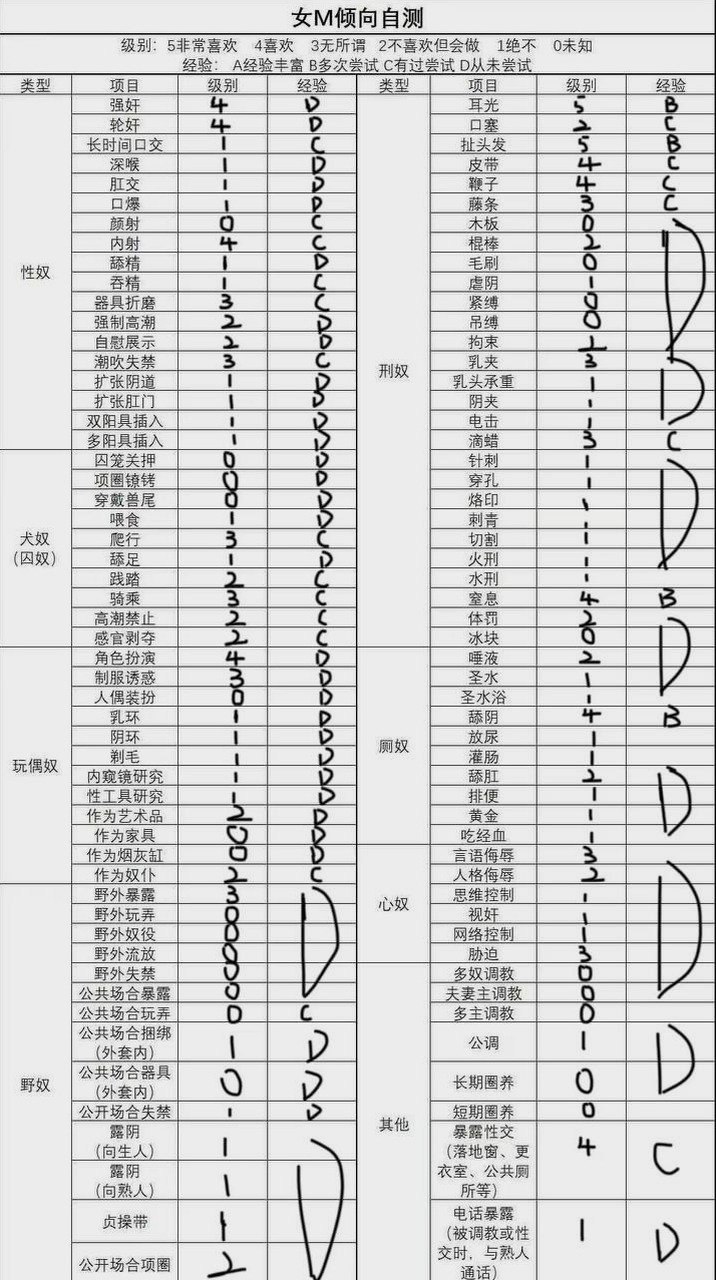 女M倾向自测
级别： 5非常喜欢 4喜欢 3无所谓 2不喜欢但会做 1绝不 0未知
经验： A经验丰富 B多次尝试 C有过尝试 D从未尝试
类型 项目 级别 经验 类型 项目 级别 经验
性奴
强奸 4 D
轮奸 4 D
长时间口交 1 C
深喉 1 D
肛交 1 D
口爆 1 D
颜射 0 C
内射 4 C
舔精 1 D
吞精 1 C
器具折磨 3 C
强制高潮 2 D
自慰展示 2 D
潮吹失禁 3 C
扩张阴道 1 D
扩张肛门 1 D
双阳具插入 1 D
多阳具插入 1 D
犬奴
（囚奴）
囚笼关押 0 D
项圈镣铐 0 D
穿戴兽尾 0 D
喂食 1 D
爬行 3 C
舔足 1 D
践踏 2 C
骑乘 3 C
高潮禁止 2 C
感官剥夺 2 C
玩偶奴
角色扮演 4 D
制服诱惑 3 D
人偶装扮 0 D
乳环 1 D
阴环 1 D
剃毛 1 D
内窥镜研究 1 D
性工具研究 1 D
作为艺术品 2 D
作为家具 0 D
作为烟灰缸 0 D
作为奴仆 2 C
野奴
野外暴露 3 D
野外玩弄 0
野外奴役 0
野外流放 0
野外失禁 0
公共场合暴露 0
公共场合玩弄 0 C
公共场合捆绑
（外套内） 1 D
公共场合器具
（外套内） 0 D
公开场合失禁 1 D
露阴
（向生人） 1 D
露阴
（向熟人） 1
贞操带 1
公开场合项圈 2
刑奴
耳光 5 B
口塞 2 C
扯头发 5 B
皮带 4 C
鞭子 4 C
藤条 3 C
木板 0 D
棍棒 2
毛刷 0
虐阴 1
紧缚 0
吊缚 0
拘束 2
乳夹 3 D
乳头承重 1
阴夹 1
电击 1
滴蜡 3 C
针刺 1 D
穿孔 1
烙印 1
刺青 1
切割 1
火刑 1
水刑 1
窒息 4 B
体罚 2 D
冰块 0
厕奴
唾液 2
圣水 1
圣水浴 1
舔阴 4 B
放尿 1
灌肠 1
舔肛 2 D
排便 1
黄金 1
吃经血 1
心奴
言语侮辱 3
人格侮辱 2 D
思维控制 1
视奸 1
网络控制 1
胁迫 3
其他
多奴调教 0
夫妻主调教 0
多主调教 0
公调 1 D
长期圈养 0
短期圈养 0
暴露性交
（落地窗、更
衣室、公共厕
所等） 4 C
电话暴露
（被调教或性
交时，与熟人
通话） 1 D